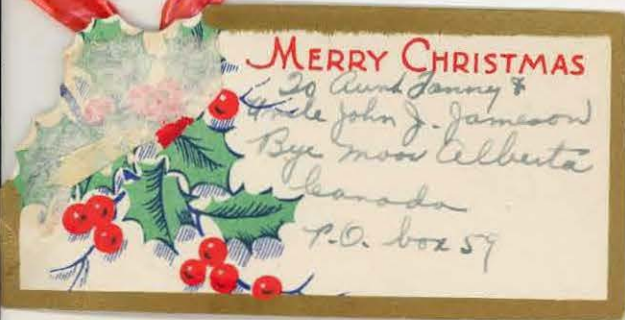 MERRY CHRISTMAS
To Aunt Fanney &
Uncle John J. Jameson
Bye Moor Alberta
Canada
P.O. box 59